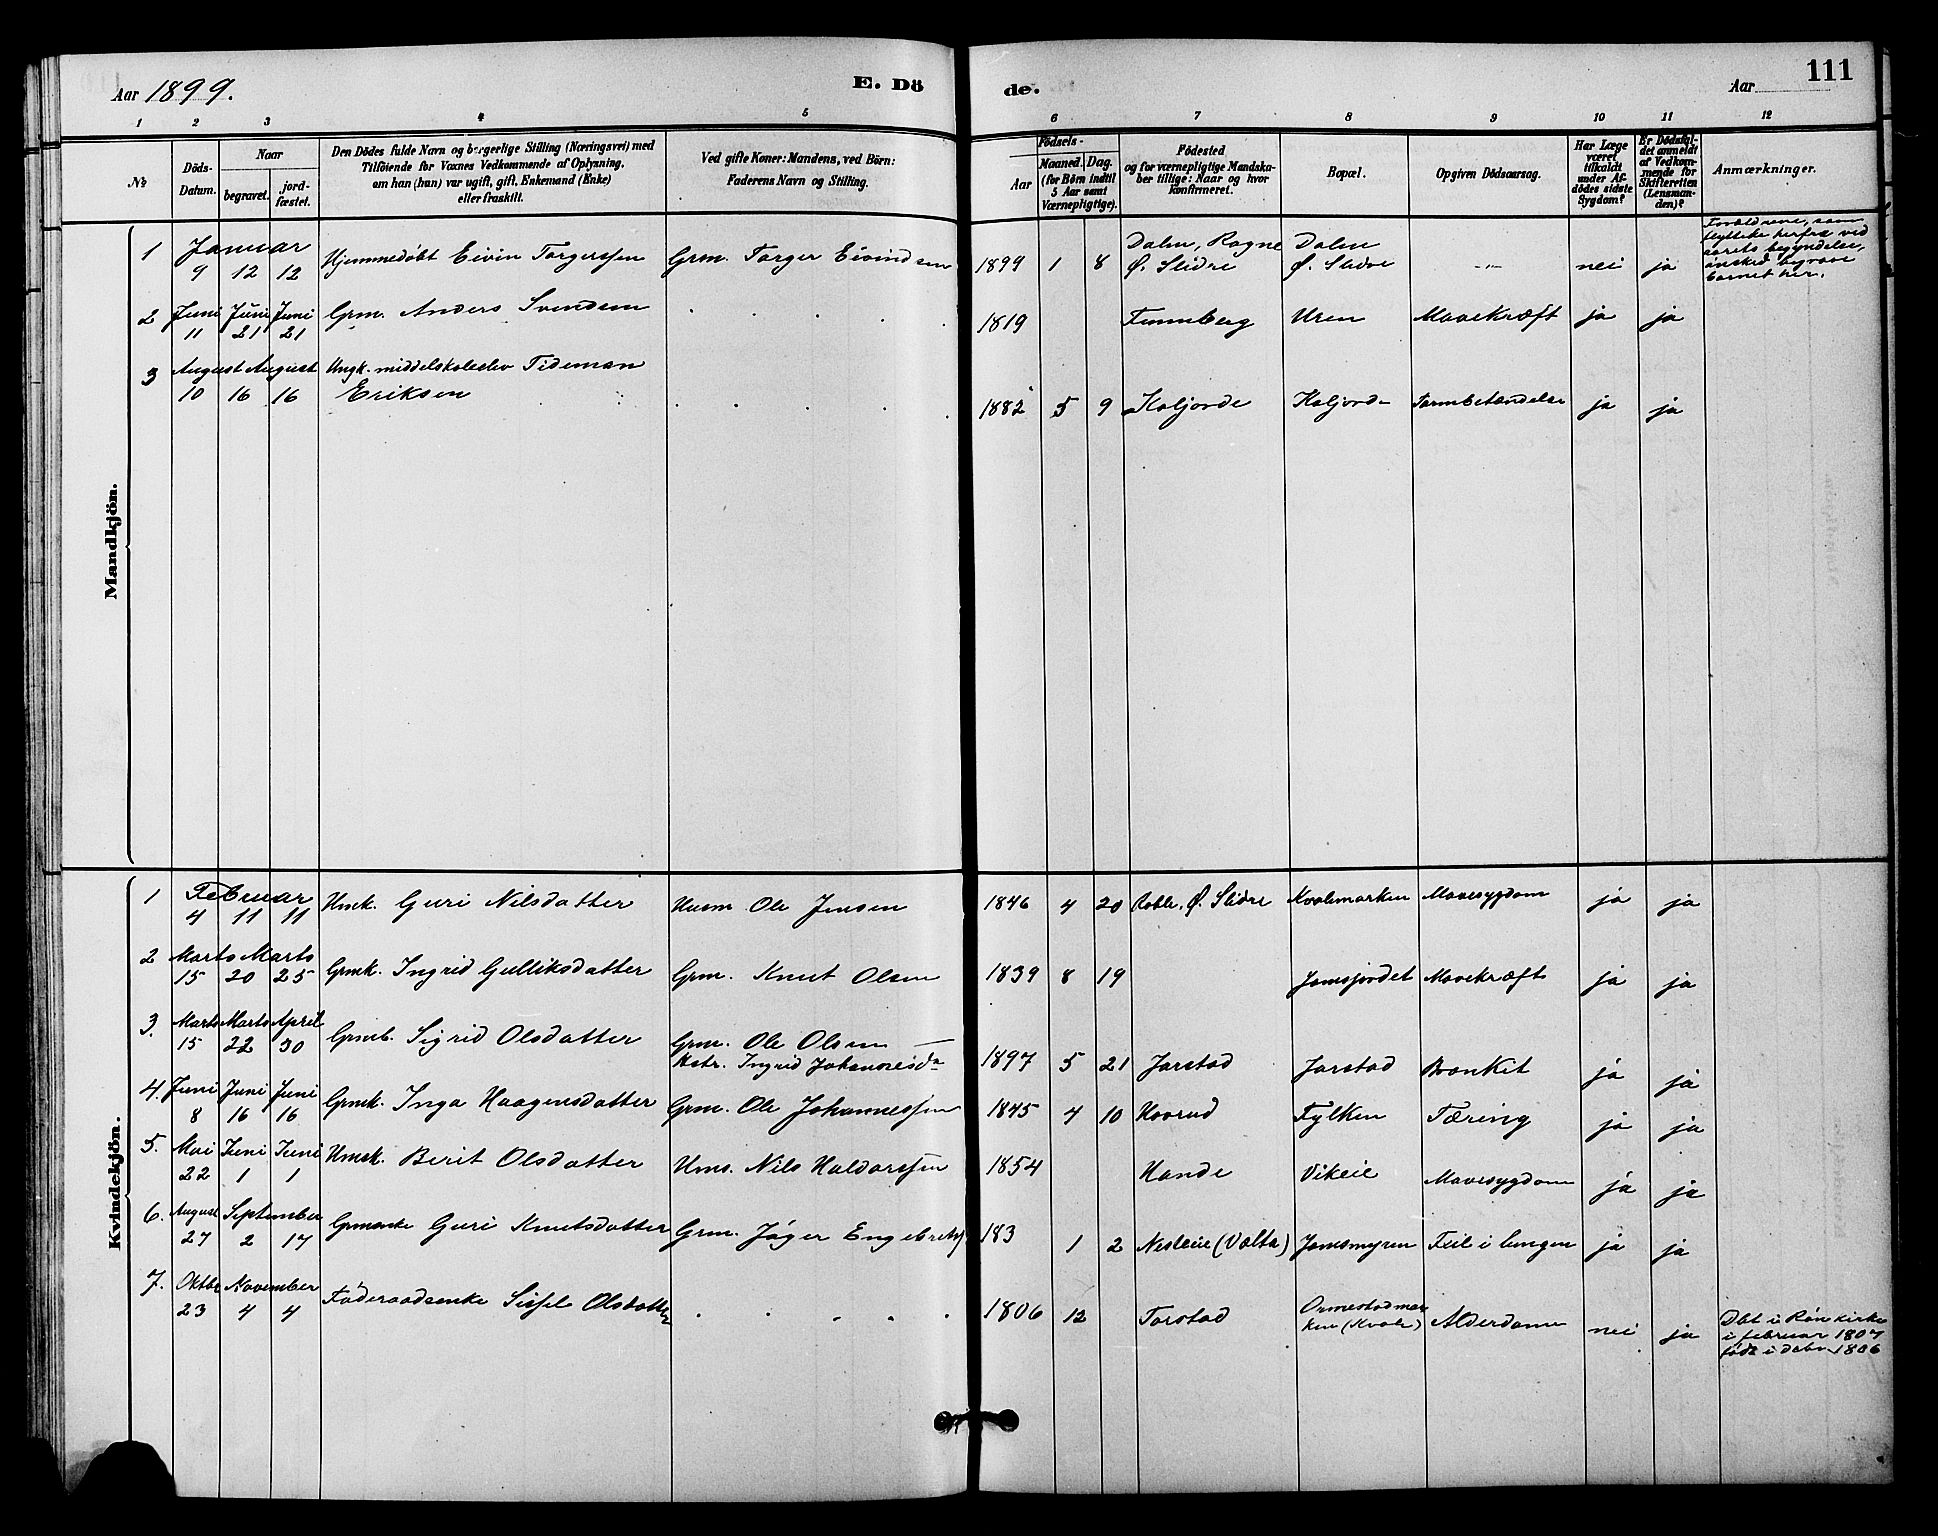 Aar 1899.
E. Dö
de.
Aar
111
1 2 3 4 5 6 7 8 9 10 11 12
№
Döds-
Datum.
Naar
begravet.
jord-
fæstet.
Den Dödes fulde Navn og borgerlige Stilling (Næringsvei) med
Tilföiende for Voxnes Vedkommende af Oplysning,
om han (hun) var ugift, gift, Enkemand (Enke)
eller fraskilt.
Ved gifte Koner: Mandens, ved Börn:
Faderens Navn og Stilling.
Födsels-
Aar
Maaned. Dag.
(for Börn indtil
5 Aar samt
Værnepligtige).
Födested
og for værnepligtige Mandska-
ber tillige: Naar og hvor
konfirmeret.
Bopæl.
Opgiven Dödsaarsag.
Har Læge
været
tilkaldt
under Af-
dödes sidste
Sygdom?
Er Dödsfal-
det anmeldt
af Vedkom-
mende for
Skifteretten
(Lensman-
den)?
Anmærkninger.
Mandkjön.
1 Januar 9 12 12 Hjemmedöbt Eivin Torgerssen Grm. Torger Eivindsen 1899 1 8 Dalen, Rogne
Ø. Slidre Dalen
Ø. Slidre -"- nei ja Forældrene, som
flyttede herfra ved
aarets begyndelse,
ønsked begrave
barnet her.
2 Juni Juni Juni
11 21 21 Grm. Anders Svendsen 1819 Funneberg Uren Mavekræft ja ja
3 August August
10 16 16 Ungk. middelskoleelev Tideman
Eriksen 1882 5 9 Koljorde Koljorde Tarmbetændelse ja ja
Kvindekjön.
1 Februar
4 11 11 Hmk. Guri Nilsdatter Husm Ole Jensen 1846 4 20 Roble, Ø. Slidre Kvalemarken Mavesygdom ja ja
2 Marts Marts
15 20 25 Grmk. Ingrid Gulliksdatter Grm. Knut Olsen 1839 8 19 Jomsjordet Mavekræft ja ja
3. Marts Marts April
15 22 30 Grmb. Sigrid Olsdatter Grm. Ole Olsen —
Hstr. Ingrid Johannesd. 1897 5 21 Jarstad Jarstad Bronkit ja ja
4. Juni Juni Juni
8 16 16 Grmk. Inga Haagensdatter Grm. Ole Johannessen 1845 4 10 Hovrud Fylken Tæring ja ja
5. Mai Juni Juni
22 1 1 Hmsk. Berit Olsdatter Hms. Nils Haldorssen 1854 Hande Vikeie Mavesygdom ja ja
6. August September
27 2 17 Grmenke Guri Knutsdatter Grm. Jøger Engebretss 183 1 2 Nesteie (Volta) Jomsmyren Feil i lungen ja ja
7. Oktbr November
23 4 4 Föderaadsenke Sissel Olsdatter 1806 12 Tarstad Ormestadmar
ken (Kvale) Alderdom nei ja Dbt i Røn kirke
i februar 1807
født i debr 1806